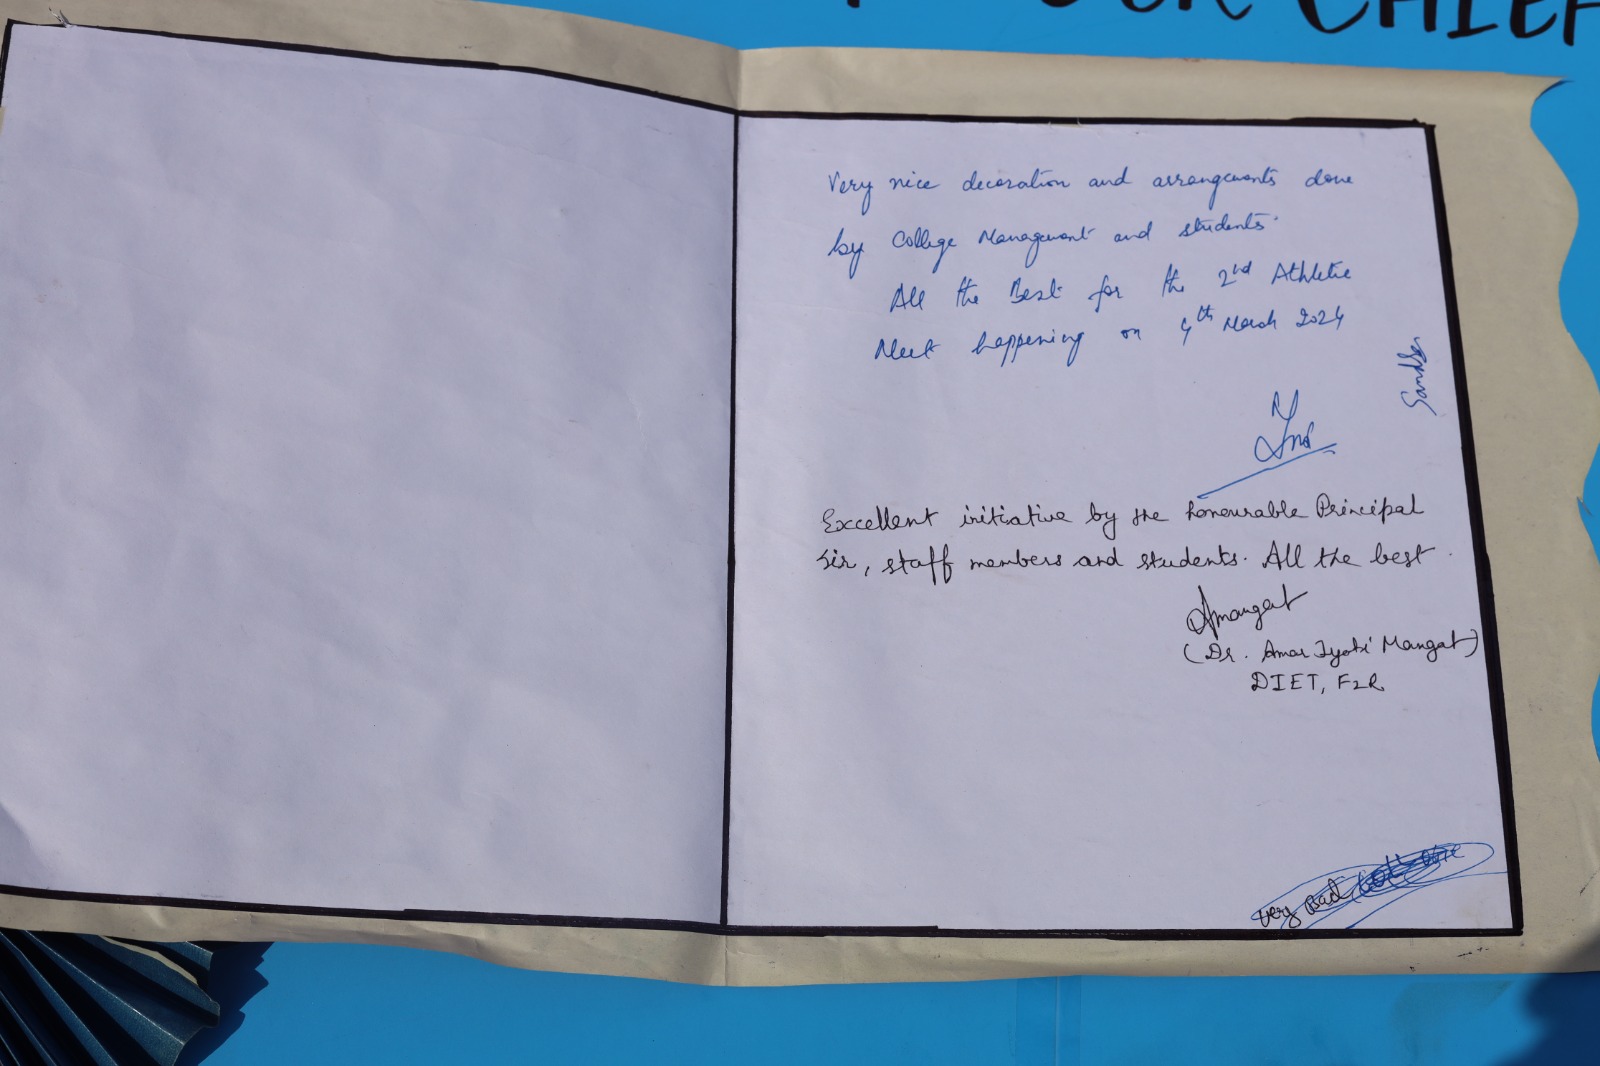 OUR CHIEF
Very nice decoration and arrangements done
by College Management and students.
All the Best for the 2nd Athletic
Meet happening on 4th March 2024
Excellent initiative by the honourable Principal
Sir, staff members and students. All the best.
Amangat
(Dr. Amar Jyoti Mangat)
DIET, FZR
very Bad